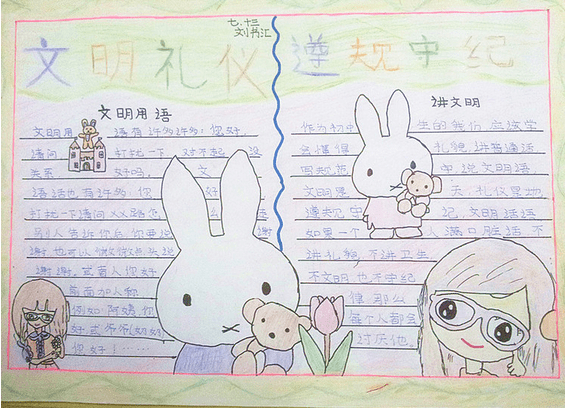 七.十三
刘书汇
文明礼仪 遵规守纪
文明用语
文明用语有许多许多：你好，
请问 打扰一下 对不起 没
关系 好吗 文
语话也有许多 你 好
打扰一下请问XX路怎 么
别人告诉你后你要说 谢
谢也可以微微微点头说
谢谢 宾客人你好
前面加人称
例如 阿姨 你
好 或 爷爷(奶奶)
你好！……
讲文明
作为初中 生的我们 应该学
会懂得 礼貌 讲普通话
同规范 中说文明语
文明是 天 礼仪是地
遵规守 纪，文明话语
如果一个 人满口脏话 不
讲礼貌 不讲卫生
不文明 也不守纪
像 那么
每个人都会
讨厌他。